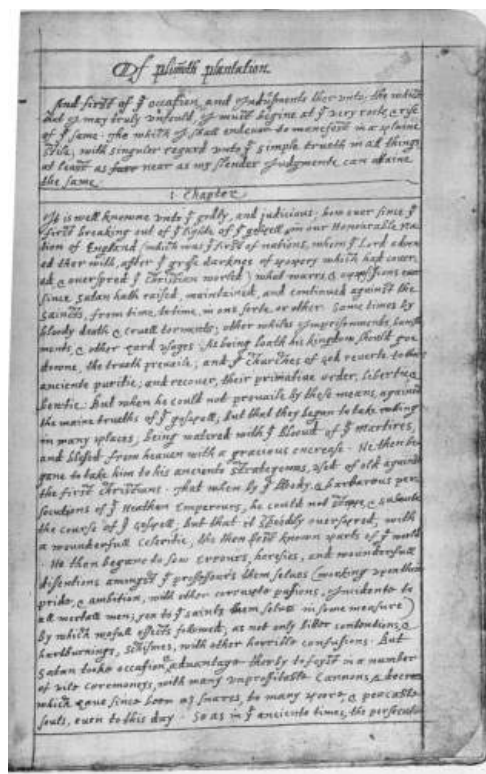 Of plimoth plantation
And first of yᵉ occasion, and Indusments ther unto; the which
that I may truly unfould, I must begine at yᵉ very roote, & rise
of yᵉ same. The which I shall endevor to manefest in a plaine
stile; with singuler regard unto yᵉ simple trueth in all things,
at least as near as my slender Judgmente can attaine
the same.
1. Chapter
It is well knowne unto yᵉ godly, and judicious; how ever since yᵉ
first breaking out of yᵉ lighte of yᵉ gospell, in our Honourable Na-
tion of England (which was yᵉ first of nations, whom yᵉ Lord adorn-
ed ther with, after yᵉ grosse darknes of popery which had cover-
ed & overspred yᵉ christian worled) what warrs, & opposissions ever
since satan hath raised, maintained, and continued against the
saincts, from time, to time, in one sorte, or other. Some times by
bloody death & cruell torments; other whiles Imprisonments, banish-
ments, & other hard usages. As being loath his kingdom should goe
downe, the trueth prevaile; and yᵉ churches of god reverte to their
anciente puritie; and recover, their primative order, libertie, &
bewtie. But when he could not prevaile by these means, against
the maine trueths of yᵉ gospell, but that they began to take rooting
in many places, being watered with yᵉ bloud of yᵉ martires,
and blessed from heaven with a gracious encrease. He then be-
gane to take him to his anciente strategemes, used of old against
the first christians. That when by yᵉ bloody, & barbarous per-
secutions of yᵉ Heathen Emperours, he could not stoppe, & subverte
the course of yᵉ gospell; but that it speedily overspred, with
a wounderfull celeritie, the then best known parts of yᵉ world
. He then begane to sow errours, heresies, and wounderfull
disentions amongst yᵉ professours them selves (working upon their
pride, & ambition, with other corrupte passions, Incidente to
all mortall men; yea to yᵉ saints them selves in some measure)
by which wofull effects followed; as not only bitter contentions, &
hartburnings, schismes, with other horrible confusions. But
satan tooke occasion & advantage therby to foyst in a number
of vile ceremoneys, with many unproffitable cannons, & decrees
which have since been as snares, to many poore, & peaceable
souls, even to this day. So as in yᵉ anciente times, the persecutions